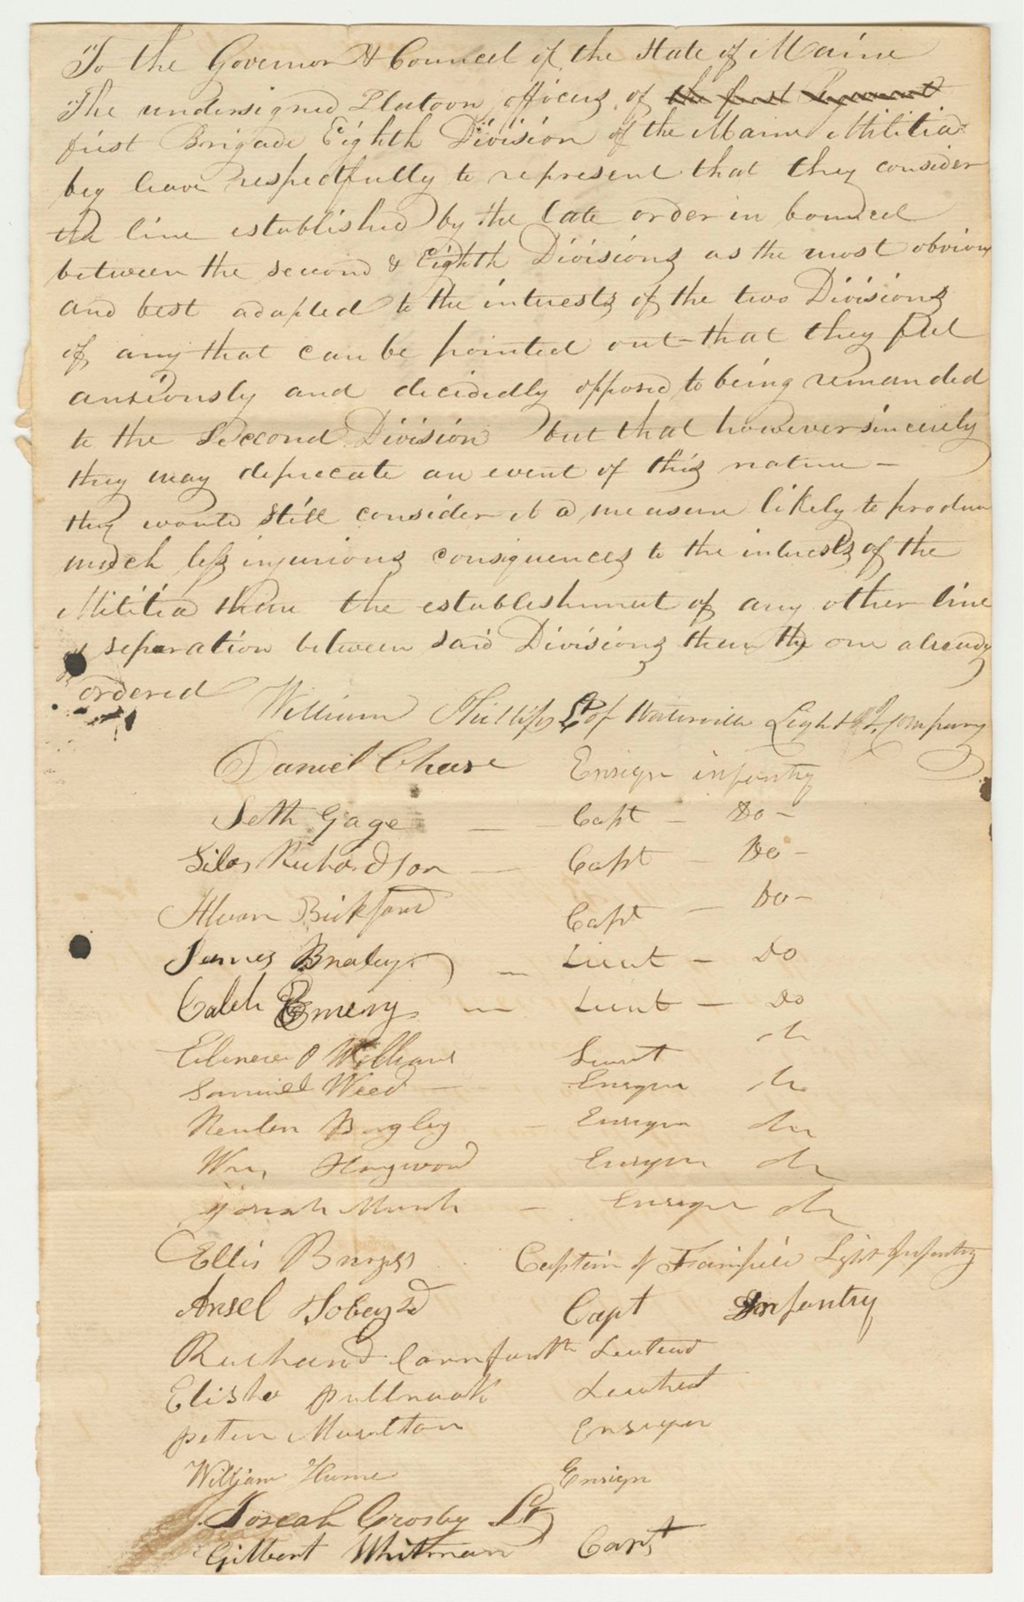 To the Governor & Council of the State of Maine
The undersigned Platoon officers of the first Regiment
first Brigade Eighth Division of the Maine Militia
beg leave respectfully to represent that they consider
the line established by the late order in counsel
between the second & Eighth Divisions as the most obvious
and best adapted to the interests of the two Divisions
of any that can be pointed out that they feel
anxiously and decidedly opposed to being remanded
to the Second Division but that however sincerely
they may deprecate an event of this nature —
they would still consider it a measure likely to produce
much less injurious consequences to the interests of the
Militia than the establishment of any other line
of separation between said Divisions than the one already
ordered
William Phillips Lt of Waterville Light I. Company
Daniel Chase Ensign infantry
Seth Gage — Capt — Do —
Silas Richardson — Capt — Do —
Alvan Bickford Capt — Do —
James Bealey — Lieut — Do
Caleb Emery — Lieut — Do
Ebenezer Williams Lieut do
Samuel Weed — Ensign do
Reuben Bagley - Ensign do
Wm Haywood Ensign do
Josiah Marsh - Ensign do
Ellis Burgess Captain of Fairfield Light Infantry
Ansel Tobey 2d Capt Infantry
Richard Cornforth Lieutend
Elisha Lieutnet
peter Moulton Ensign
William Ensign
Josiah Crosby Lt
Gilbert Whitman Capt